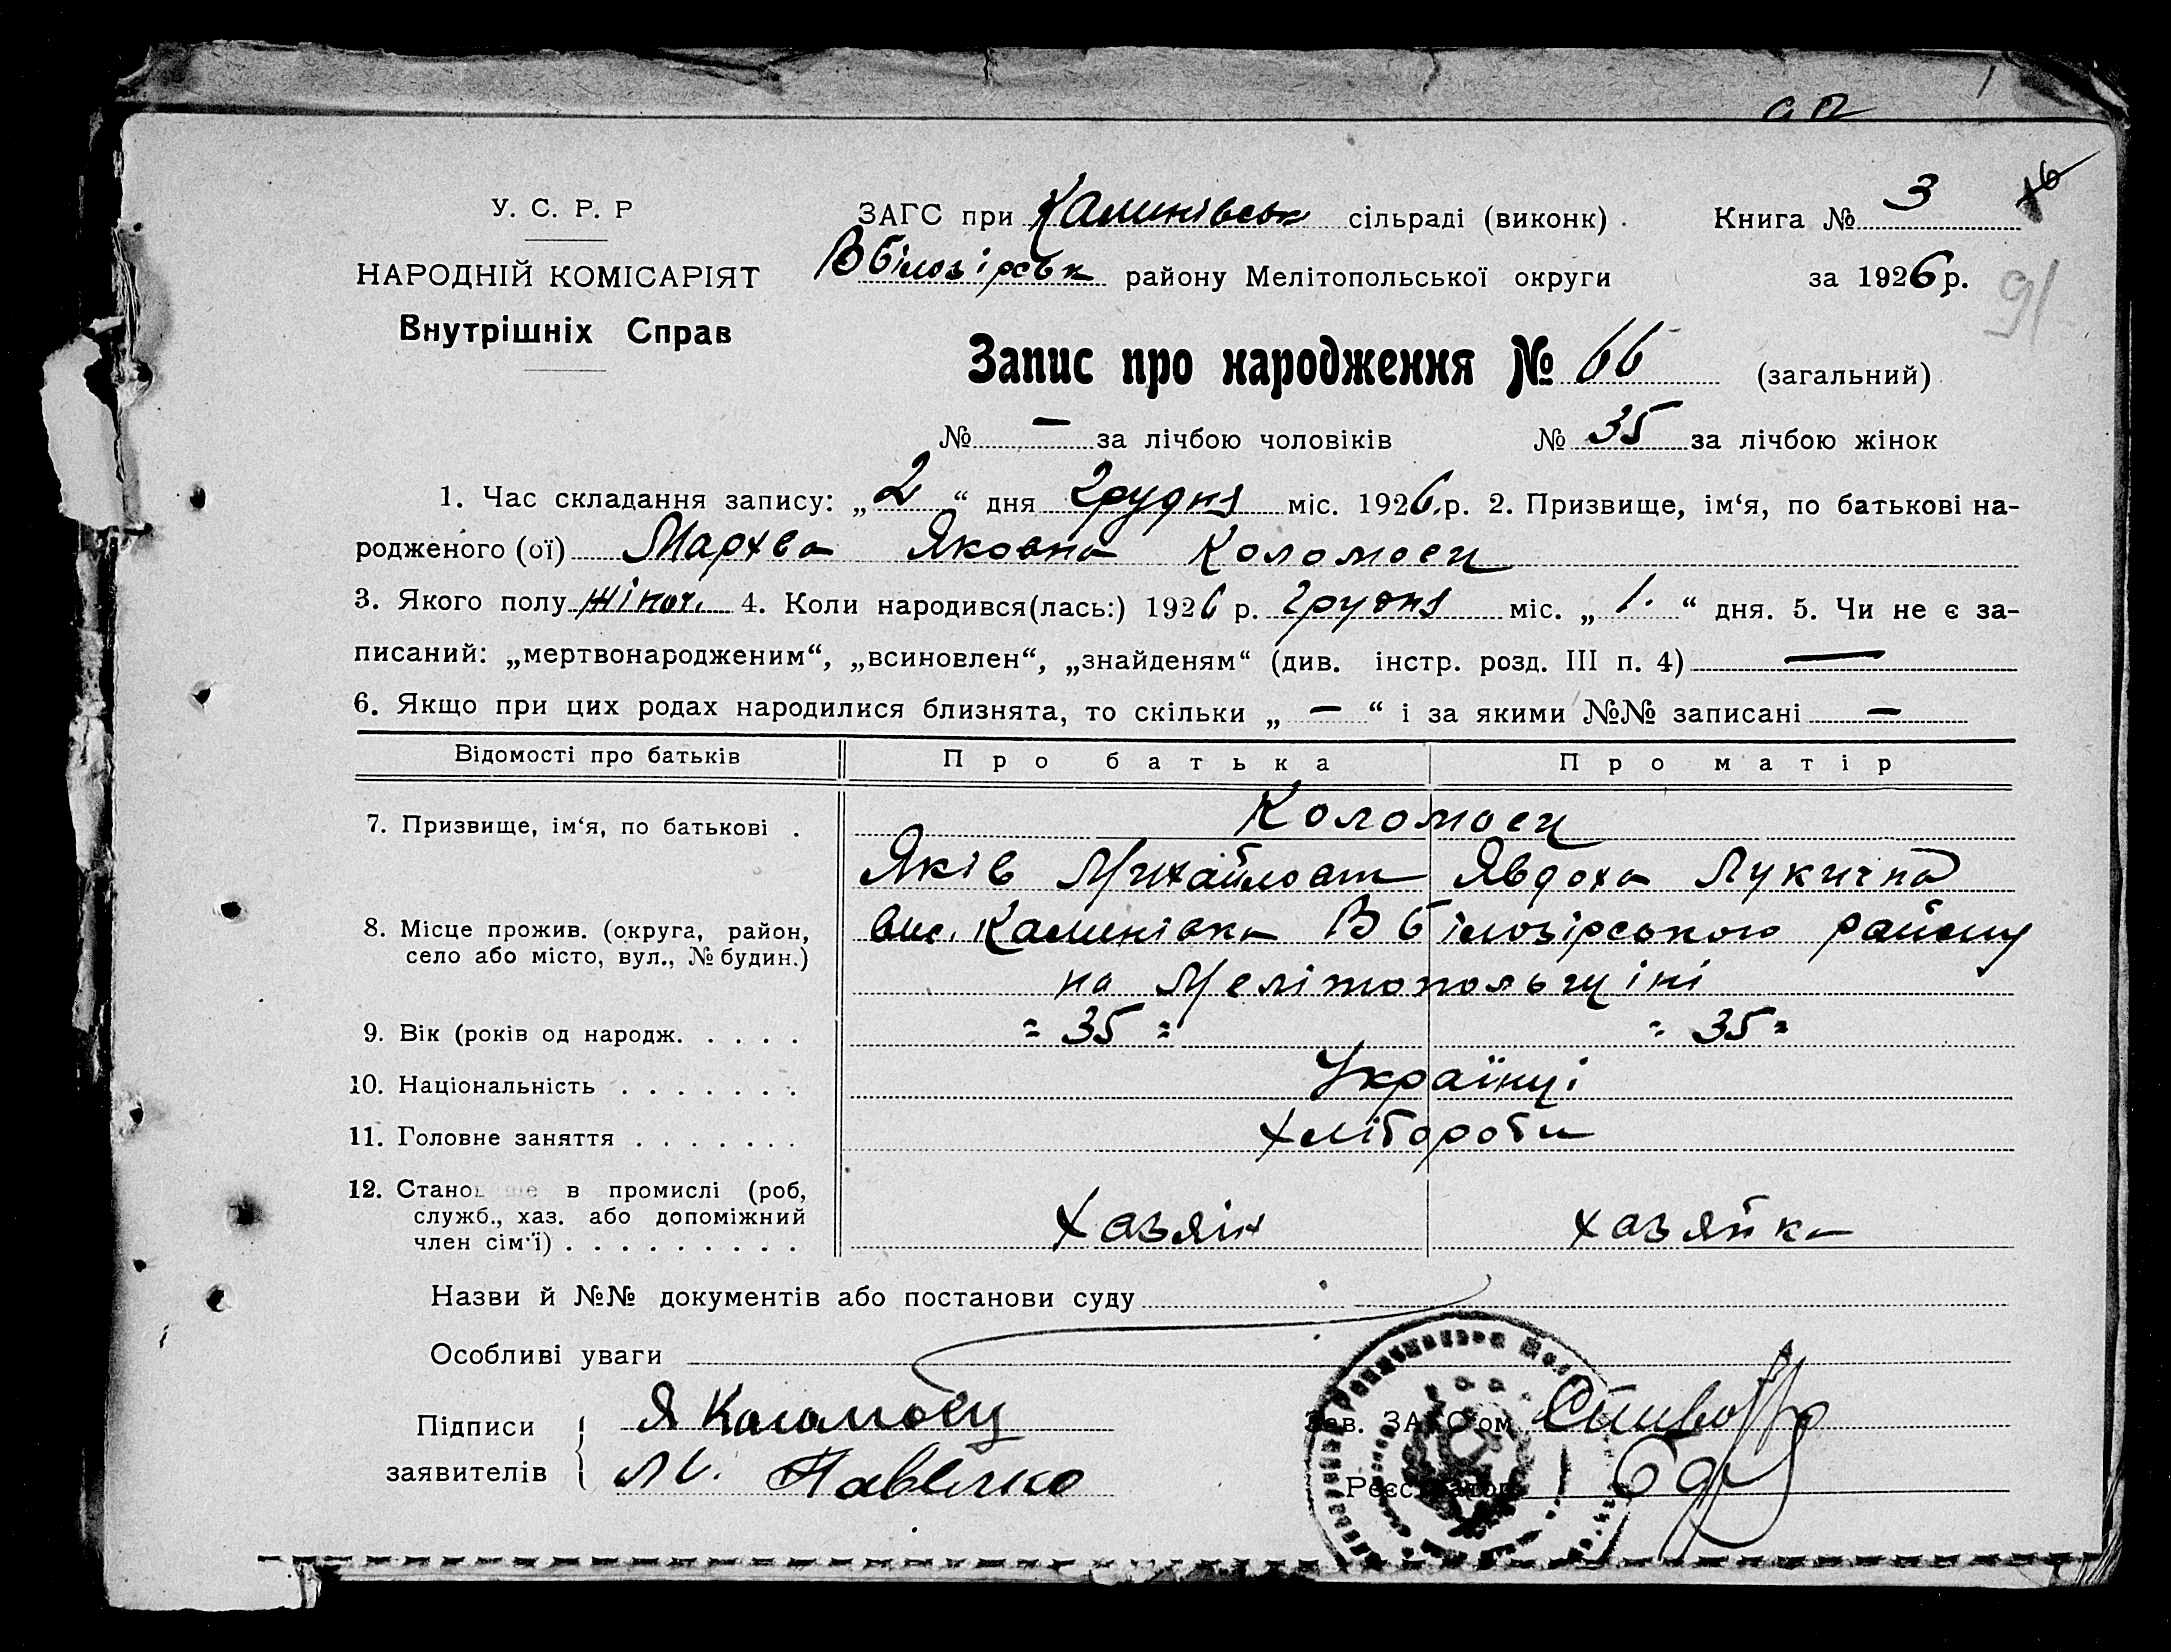 У. С. Р. Р
НАРОДНІЙ КОМІСАРІЯТ
Внутрішніх Справ
ЗАГС при Калинівськ сільраді (виконк).
Книга № 3
В Білозірськ району Мелітопольської округи
за 1926 р.
91
Запис про народження № 66 (загальний)
№ — за лічбою чоловіків № 35 за лічбою жінок
1. Час складання запису: „2“ дня Грудня міс. 1926 р. 2. Призвище, ім‘я, по батькові на-
родженого (ої) Мархва Яковна Коломоєц
3. Якого полу жіноч. 4. Коли народився(лась:) 1926 р. Грудня міс. „1.“ дня. 5. Чи не є за-
писаний: „мертвонародженим“, „всиновлен“, „знайденям“ (див. інстр. розд. III п. 4) —
6. Якщо при цих родах народилися близнята, то скільки „—“ і за якими №№ записані —
Відомості про батьків Про батька Про матір
7. Призвище, ім‘я, по батькові . Коломоєц
Яків Михайлович Явдоха Лукична
8. Місце прожив. (округа, район, село або місто, вул., № будин.) вис. Калинівка В Білозірського району
на Мелітопольщині
9. Вік (років од народж. . . . . = 35 = = 35 =
10. Національність . . . . . . . Українці
11. Головне заняття . . . . . . . Хлібороби
12. Становище в промислі (роб, служб., хаз. або допоміжний член сім‘ї) . . . . . . . . . Хазяїн хазяйка
Назви й №№ документів або постанови суду
Особливі уваги
Підписи заявителів
Я Коломоєц
М. Павелко
Зав. ЗАГС‘ом
Реєстратор